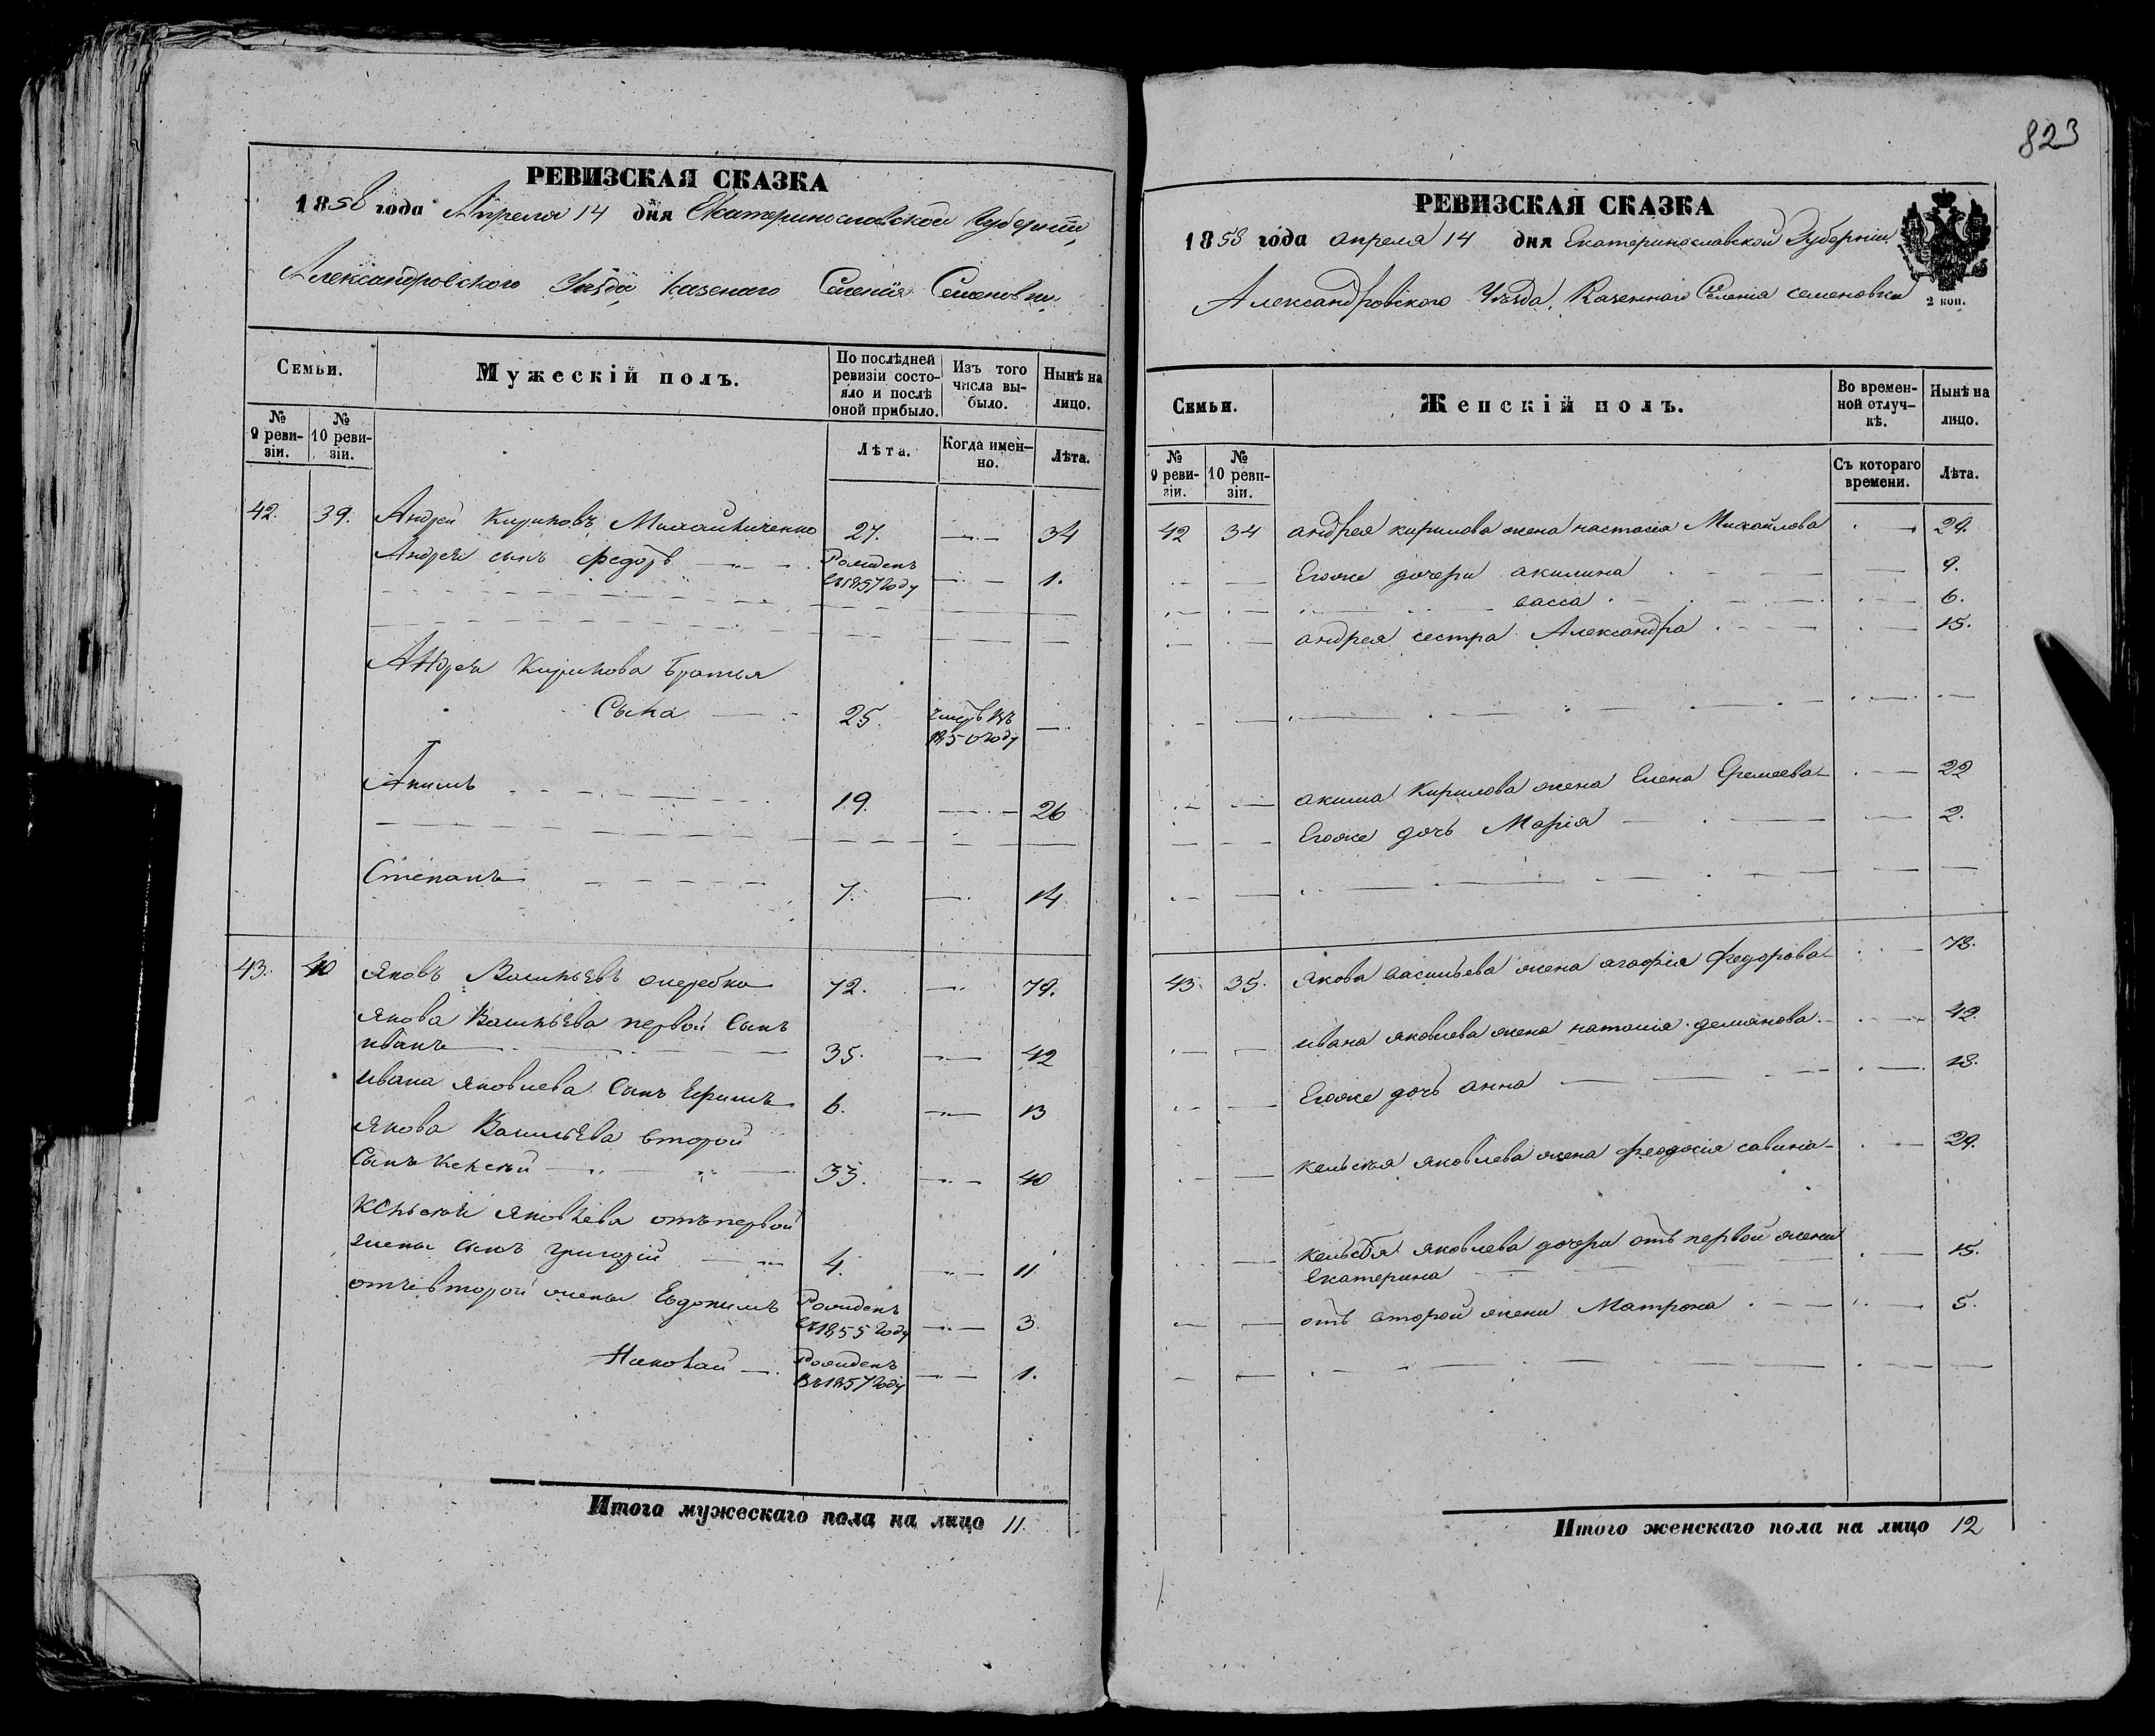 823
РЕВИЗСКАЯ СКАЗКА
1858 года Апреля 14 дня Екатеринославской Губернии,
Александровского Уезда Казенаго Селенія Семеновки,
Семьи. Мужескій полъ. По послѣдней ревизіи состояло и послѣ оной прибыло. Изъ того числа выбыло. Нынѣ на лицо.
№ 9 ревизіи. № 10 ревизіи. Лѣта. Когда именно. Лѣта.
42. 39. Андрей Кириловъ 27. 34
Андрея сынъ Федоръ Рожденъ въ 1857 году 1.
Андрея Кирилова Братья
25. 1850 году
Акимъ 19. 26
Степанъ 7. 14
43. 40 Яковъ Васильевъ 72. 79.
Якова Васильева первой Сынъ
иванъ 35. 42
ивана Яковлева Сынъ Ефимъ 6. 13
Якова Васильева второй
Сынъ 33. 40
Яковлева отъ первой
жены сынъ григорій 4. 11
отъ второй жены Евдокимъ Рожденъ въ 1855 году 3.
Николай Рожденъ въ 1857 году 1.
Итого мужескаго пола на лицо 11.
РЕВИЗСКАЯ СКАЗКА
1858 года апреля 14 дня Екатеринославской Губерніи
Александровского Уезда, Казеннаго Селенія семеновки
2 коп.
Семьи. Женскій полъ. Во временной отлучкѣ. Нынѣ на лицо.
№ 9 ревизіи. № 10 ревизіи. Съ котораго времени. Лѣта.
42 34 андрея кирилова жена настасія Михайлова 29.
Егоже дочери акилина 9.
васса 6.
андрея сестра Александра 15.
акима Кирилова жена Елена Еремеева 22
Егоже дочь Марія 2.
43. 35. Якова васильева жена агафія Федорова 78.
ивана яковлева жена наталія демянова 42.
Егоже дочь анна 18.
яковлева жена феодосія савина 29.
яковлева дочери отъ первой жены
екатерина 15.
отъ второй жены Матрона 5.
Итого женскаго пола на лицо 12